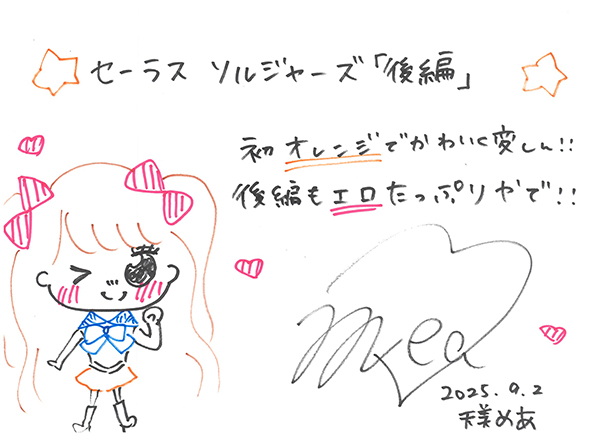 セーラス ソルジャーズ「後編」
初オレンジでかわいく愛しん!!
後編もエロたっぷりやで!!
Mea
2025.9.2
天美めあ